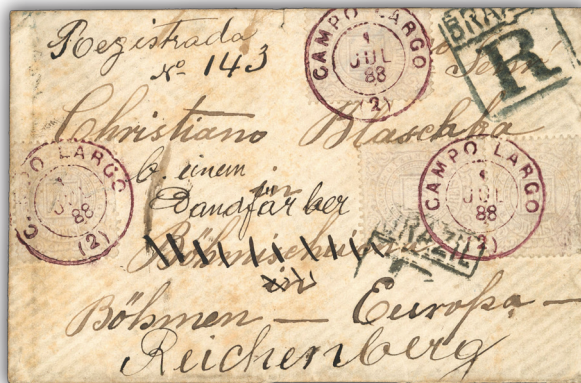 Registrada
No 143
CAMPO LARGO
1
JUL
88
(2)
BRAZIL
R
Christiano Blaschka
b. einem
CAMPO LARGO
1
JUL
88
(2)
CAMPO LARGO
1
JUL
88
(2)
in
BRAZIL
in
Böhmen — Europa —
Reichenberg